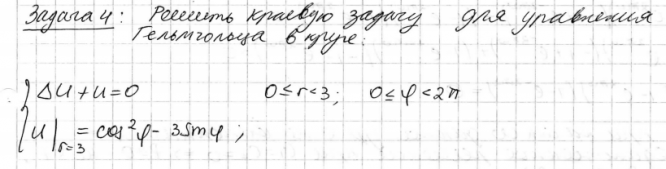 Задача 4: Решить краевую задачу для уравнения
Гельмгольца в круге:
Δu + u = 0    0 ≤ r < 3;    0 ≤ φ < 2π
u|r=3 = cos²φ - 3sinφ;